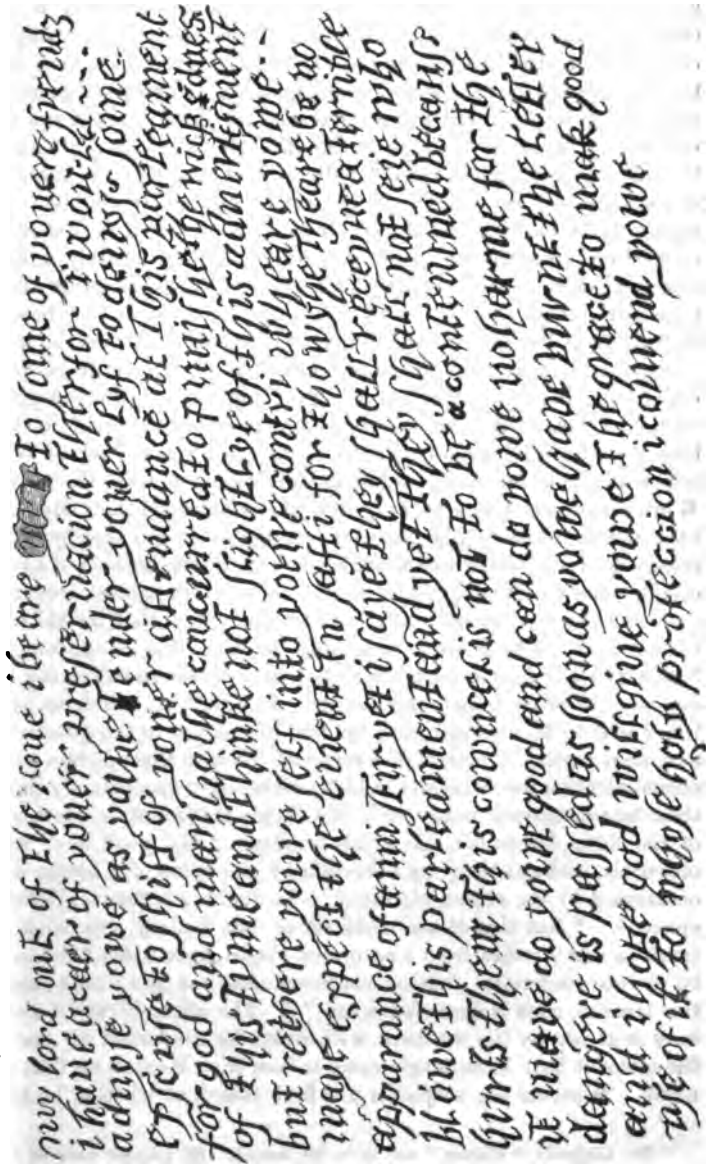 my lord out of the love i beare to some of youere frendz
i have a caer of youer preservacion therfor i would
advyse yowe as yowe tender youer lyf to devyse some
epscuse to shift of youer attendance at this parleament
for god and man hathe concurred to punishe the wickednes
of this tyme and thinke not slightlye of this advertisment
but retyere youre self into youre contri wheare yowe
maye expect the event in safti for thowghe theare be no
apparance of anni stir yet i saye they shall receyve a terrible
blowe this parleament and yet they shall not seie who
hurts them this cowncel is not to be a contemned because
it maye do yowe good and can do yowe no harme for the
dangere is passed as soon as yowe have burnt the letter
and i hope god will give yowe the grace to mak good
use of it to whose holy proteccion i comend yowe